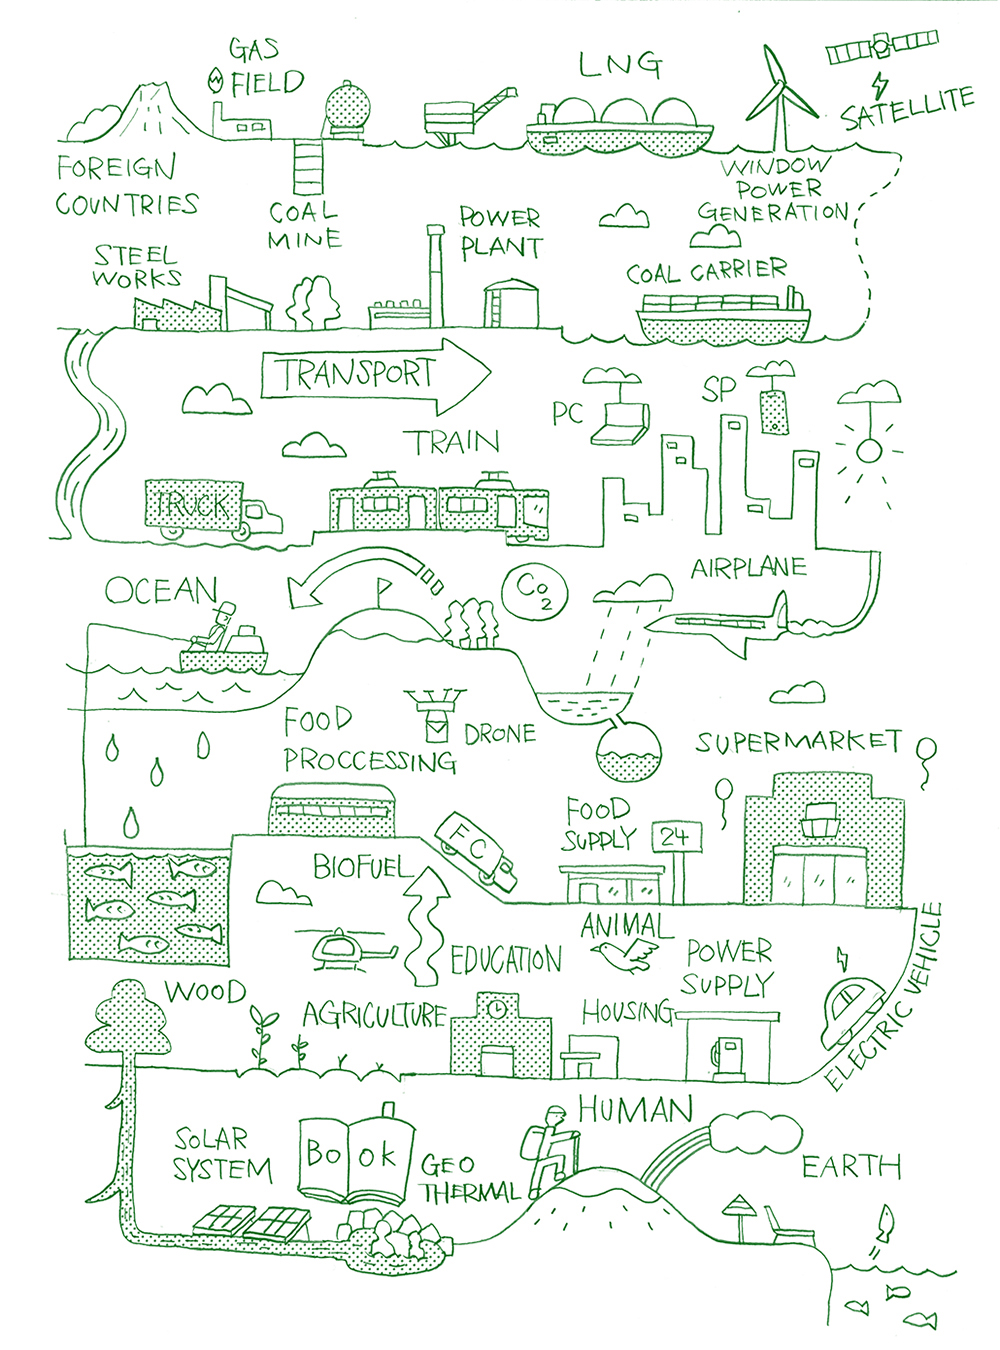 GAS
FIELD
LNG
SATELLITE
FOREIGN
COUNTRIES
COAL
MINE
WINDOW
POWER
GENERATION
STEEL
WORKS
POWER
PLANT
COAL CARRIER
TRANSPORT
PC
SP
TRAIN
TRUCK
OCEAN
CO2
AIRPLANE
FOOD
PROCCESSING
DRONE
SUPERMARKET
FOOD
SUPPLY
24
FC
BIOFUEL
ANIMAL
EDUCATION
POWER
SUPPLY
ELECTRIC VEHICLE
WOOD
AGRICULTURE
HOUSING
HUMAN
SOLAR
SYSTEM
BOOK
GEO
THERMAL
EARTH